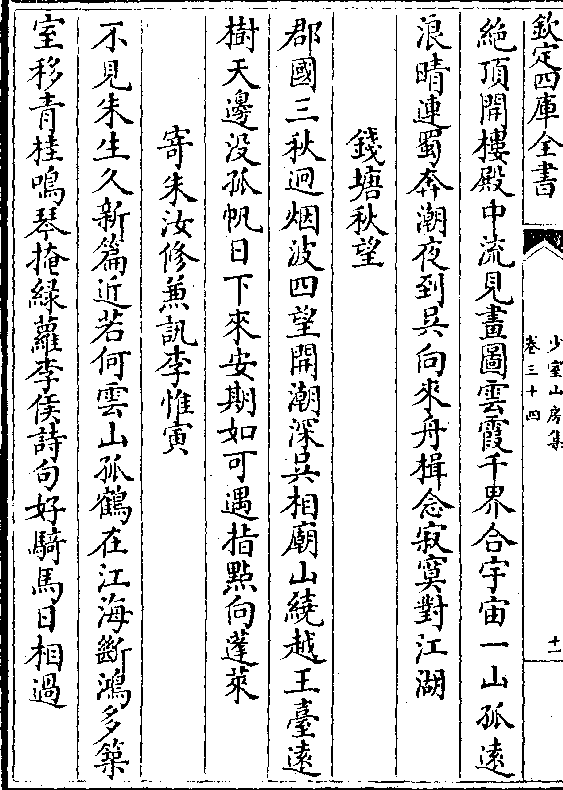 欽定四庫全書
少室山房集
卷三十四
十一
絶頂開樓殿中流見畫圖雲霞千界合宇宙一山孤遠
浪晴連蜀奔潮夜到吳向來舟楫念寂寞對江湖
錢塘秋望
郡國三秋迥烟波四望開潮深吳相廟山繞越王臺遠
樹天邊没孤帆日下來安期如可遇指點向蓬萊
寄朱汝修兼訊李惟寅
不見朱生久新篇近若何雲山孤鶴在江海斷鴻多築
室移青桂鳴琴掩緑蘿李侯詩句好騎馬日相過